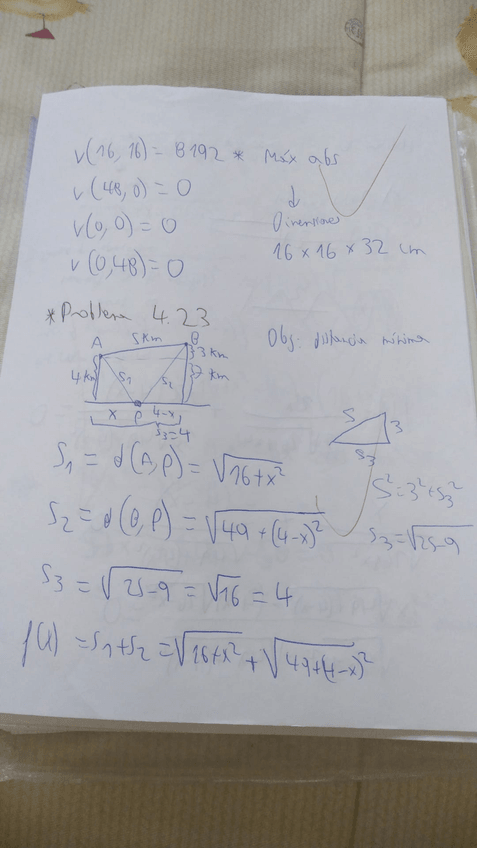 V(16, 16) = 8192 * Máx abs
V(48, 0) = 0
↓
V(0, 0) = 0
Dimensiones
V(0, 48) = 0
16 x 16 x 32 cm
*Problema 4.23
Obj: distancia mínima
5 km
A
B
3 km
4 km
S1
S2
7 km
x
P
4-x
S3=4
S
3
S3
S1 = d(A,P) = √16+x²
S² = 3² + S3²
S2 = d(B,P) = √49+(4-x)²
S3 = √25-9
S3 = √25-9 = √16 = 4
f(x) = S1+S2 = √16+x² + √49+(4-x)²